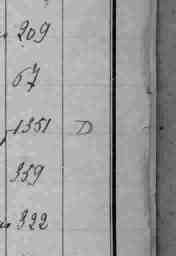 209
67
1351 D
359
322